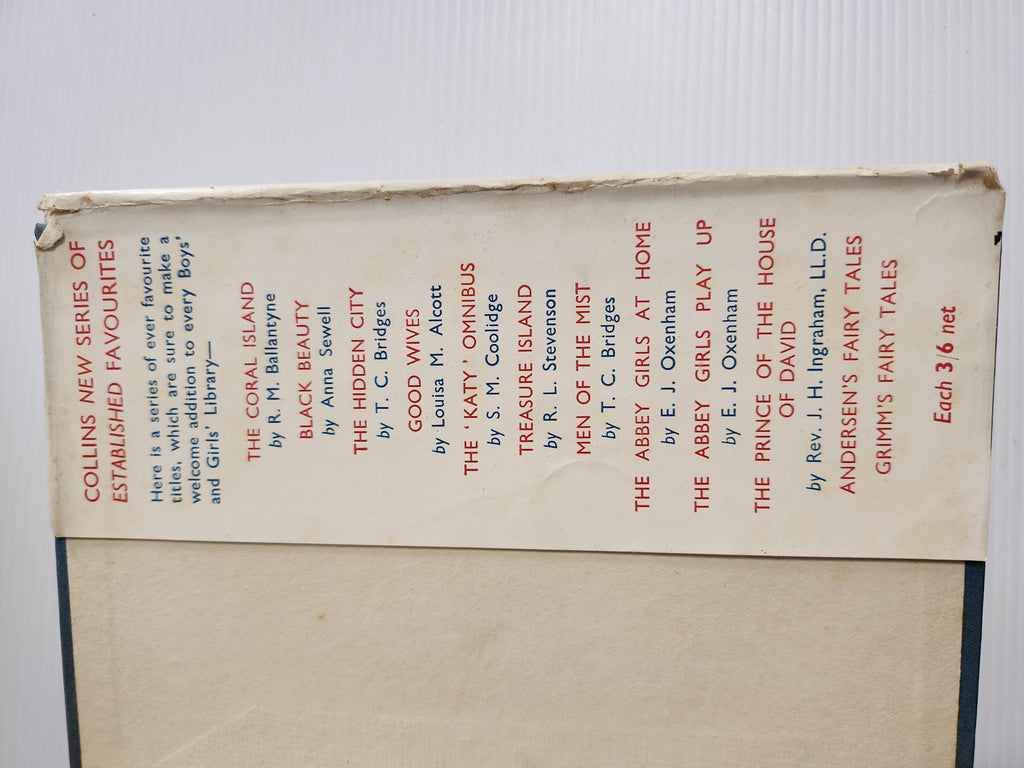 COLLINS NEW SERIES OF
ESTABLISHED FAVOURITES
Here is a series of ever favourite
titles, which are sure to make a
welcome addition to every Boys'
and Girls' Library—
THE CORAL ISLAND
by R. M. Ballantyne
BLACK BEAUTY
by Anna Sewell
THE HIDDEN CITY
by T. C. Bridges
GOOD WIVES
by Louisa M. Alcott
THE 'KATY' OMNIBUS
by S. M. Coolidge
TREASURE ISLAND
by R. L. Stevenson
MEN OF THE MIST
by T. C. Bridges
THE ABBEY GIRLS AT HOME
by E. J. Oxenham
THE ABBEY GIRLS PLAY UP
by E. J. Oxenham
THE PRINCE OF THE HOUSE
OF DAVID
by Rev. J. H. Ingraham, LL.D.
ANDERSEN'S FAIRY TALES
GRIMM'S FAIRY TALES
Each 3/6 net